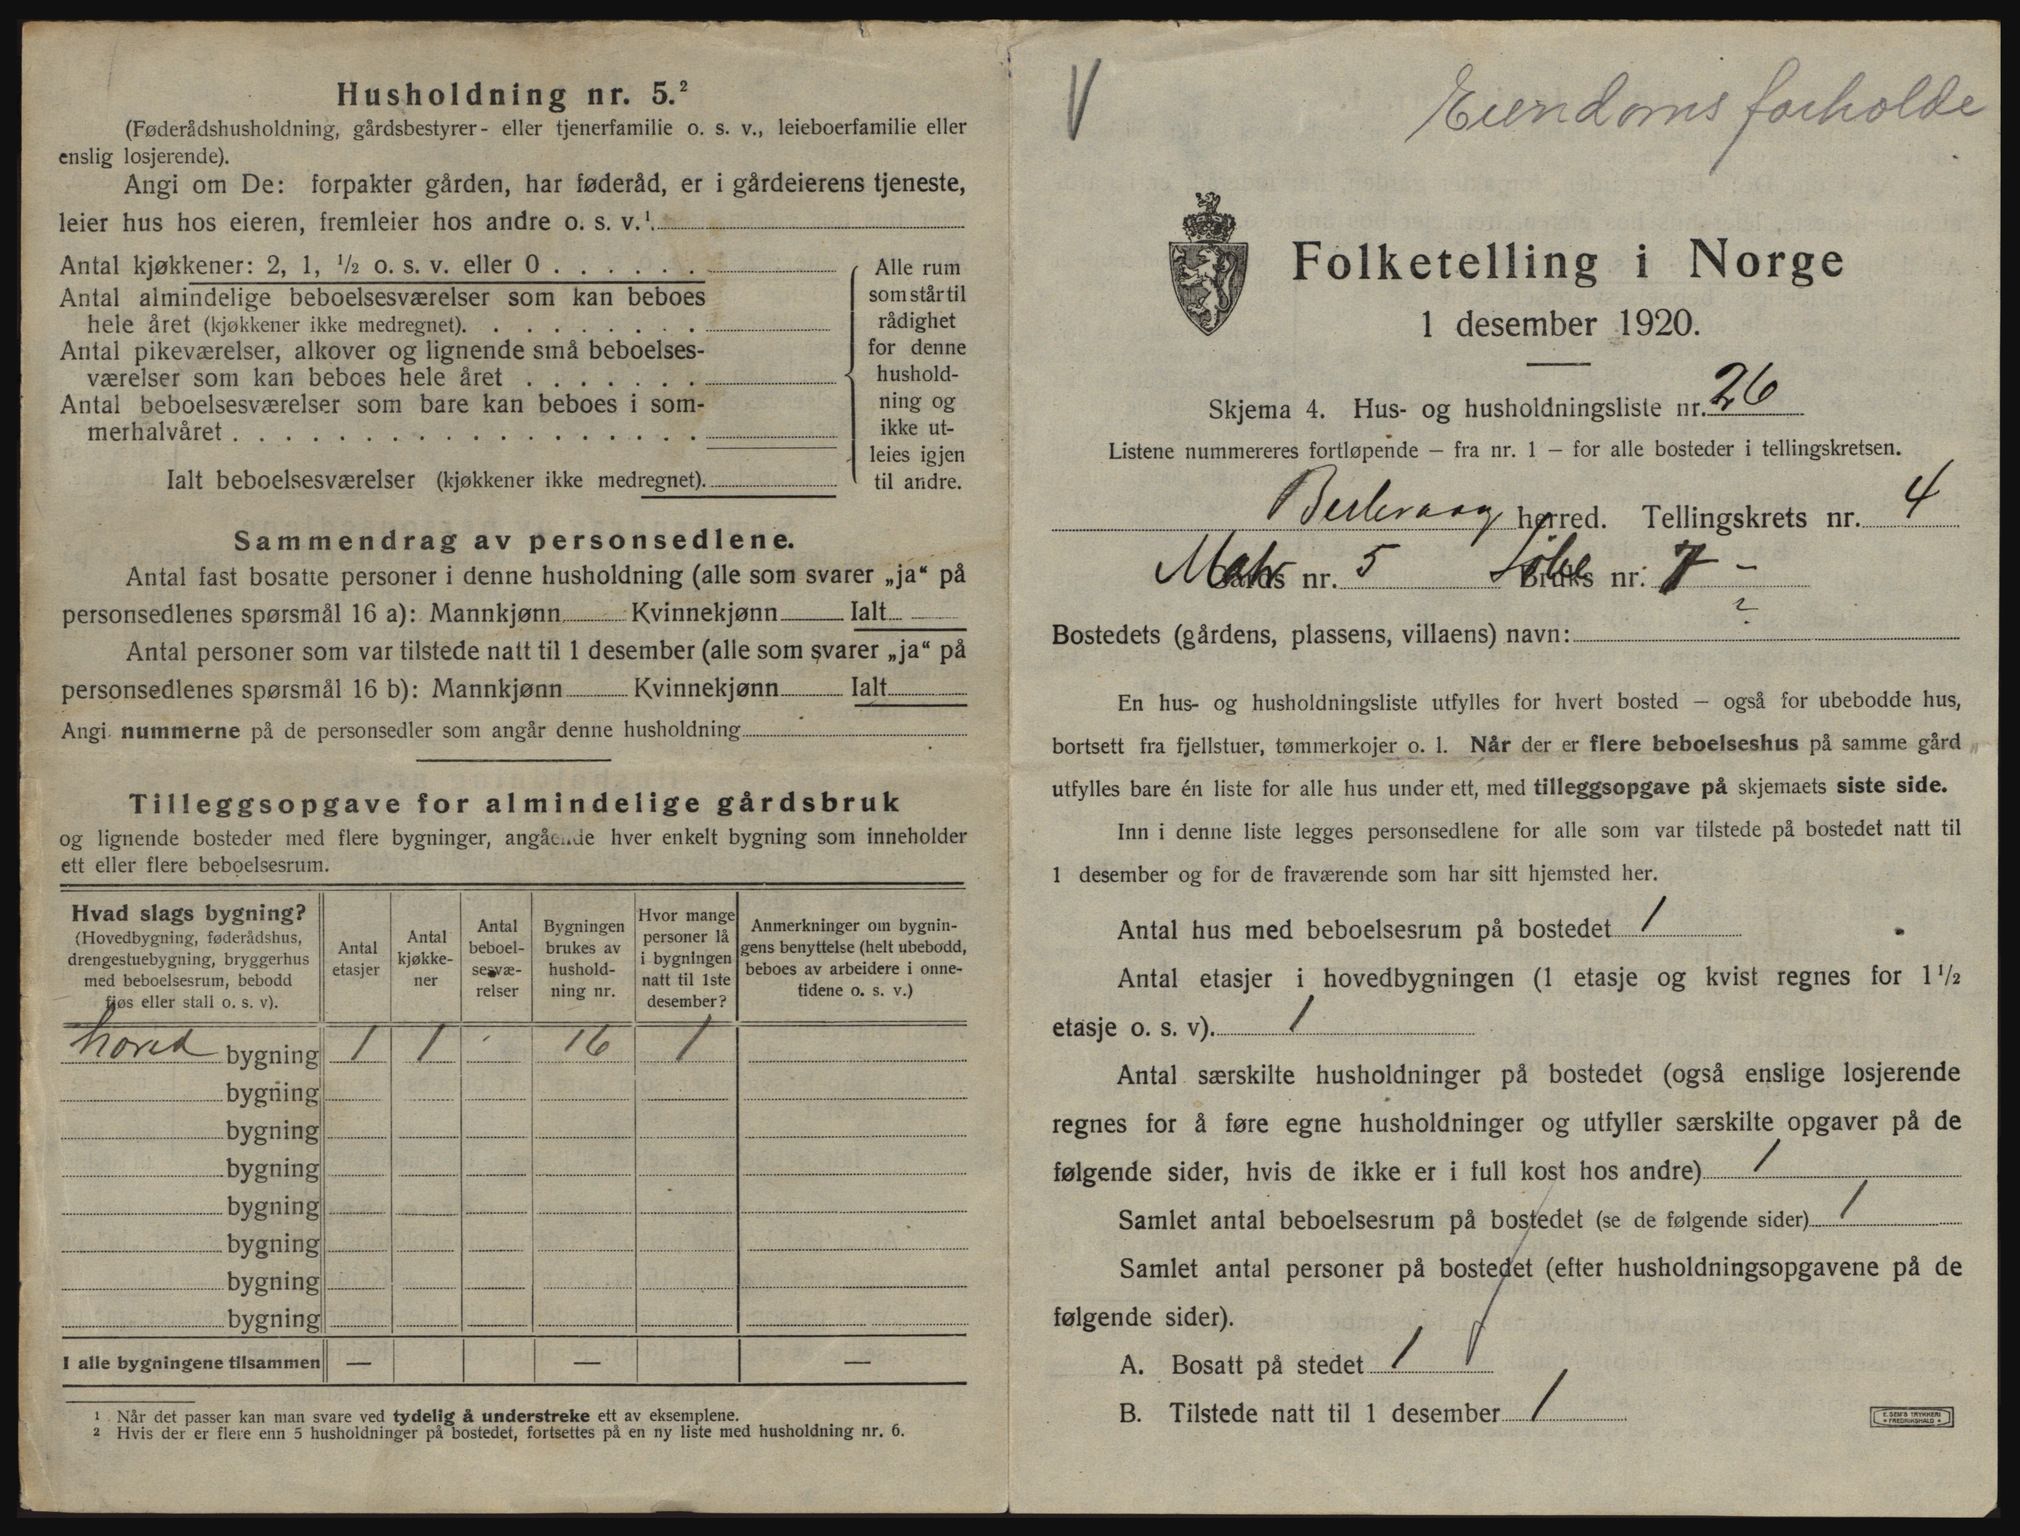 Husholdning nr. 5.²
(Føderådshusholdning, gårdsbestyrer- eller tjenerfamilie o. s. v., leieboerfamilie eller
enslig losjerende).
Angi om De: forpakter gården, har føderåd, er i gårdeierens tjeneste,
leier hus hos eieren, fremleier hos andre o. s. v.¹.
Antal kjøkkener: 2, 1, ½ o. s. v. eller 0 . . . . . .
Antal almindelige beboelsesværelser som kan beboes
hele året (kjøkkener ikke medregnet). . . . . . . . .
Antal pikeværelser, alkover og lignende små beboelses-
værelser som kan beboes hele året . . . . . . .
Antal beboelsesværelser som bare kan beboes i som-
merhalvåret . . . . . . . . . . . . . . . . . .
Ialt beboelsesværelser (kjøkkener ikke medregnet).
Alle rum
som står til
rådighet
for denne
hushold-
ning og
ikke ut-
leies igjen
til andre.
Sammendrag av personsedlene.
Antal fast bosatte personer i denne husholdning (alle som svarer „ja“ på
personsedlenes spørsmål 16 a): Mannkjønn Kvinnekjønn Ialt
Antal personer som var tilstede natt til 1 desember (alle som svarer „ja“ på
personsedlenes spørsmål 16 b): Mannkjønn Kvinnekjønn Ialt
Angi nummerne på de personsedler som angår denne husholdning
Tilleggsopgave for almindelige gårdsbruk
og lignende bosteder med flere bygninger, angående hver enkelt bygning som inneholder
ett eller flere beboelsesrum.
Hvad slags bygning?
(Hovedbygning, føderådshus,
drengestuebygning, bryggerhus
med beboelsesrum, bebodd
fjøs eller stall o. s. v).
Antal
etasjer
Antal
kjøkke-
ner
Antal
beboel-
sesvæ-
relser
Bygningen
brukes av
hushold-
ning nr.
Hvor mange
personer lå
i bygningen
natt til 1ste
desember?
Anmerkninger om bygnin-
gens benyttelse (helt ubebodd,
beboes av arbeidere i onne-
tidene o. s. v.)
hoved bygning 1 1 16 1
bygning
bygning
bygning
bygning
bygning
bygning
bygning
I alle bygningene tilsammen — — —
¹ Når det passer kan man svare ved tydelig å understreke ett av eksemplene.
² Hvis der er flere enn 5 husholdninger på bostedet, fortsettes på en ny liste med husholdning nr. 6.
Eiendoms forholde
Folketelling i Norge
1 desember 1920.
Skjema 4. Hus- og husholdningsliste nr. 26
Listene nummereres fortløpende – fra nr. 1 – for alle bosteder i tellingskretsen.
Berlevaag herred. Tellingskrets nr. 4
Matr Gårds nr. 5 Løbe Bruks nr. 7 -
?
Bostedets (gårdens, plassens, villaens) navn:
En hus- og husholdningsliste utfylles for hvert bosted – også for ubebodde hus,
bortsett fra fjellstuer, tømmerkojer o. l. Når der er flere beboelseshus på samme gård
utfylles bare én liste for alle hus under ett, med tilleggsopgave på skjemaets siste side.
Inn i denne liste legges personsedlene for alle som var tilstede på bostedet natt til
1 desember og for de fraværende som har sitt hjemsted her.
Antal hus med beboelsesrum på bostedet 1
Antal etasjer i hovedbygningen (1 etasje og kvist regnes for 1½
etasje o. s. v). 1
Antal særskilte husholdninger på bostedet (også enslige losjerende
regnes for å føre egne husholdninger og utfyller særskilte opgaver på de
følgende sider, hvis de ikke er i full kost hos andre) 1
Samlet antal beboelsesrum på bostedet (se de følgende sider) 1
Samlet antal personer på bostedet (efter husholdningsopgavene på de
følgende sider).
A. Bosatt på stedet 1
B. Tilstede natt til 1 desember 1
E. SEM'S TRYKKERI
FREDRIKSHALD